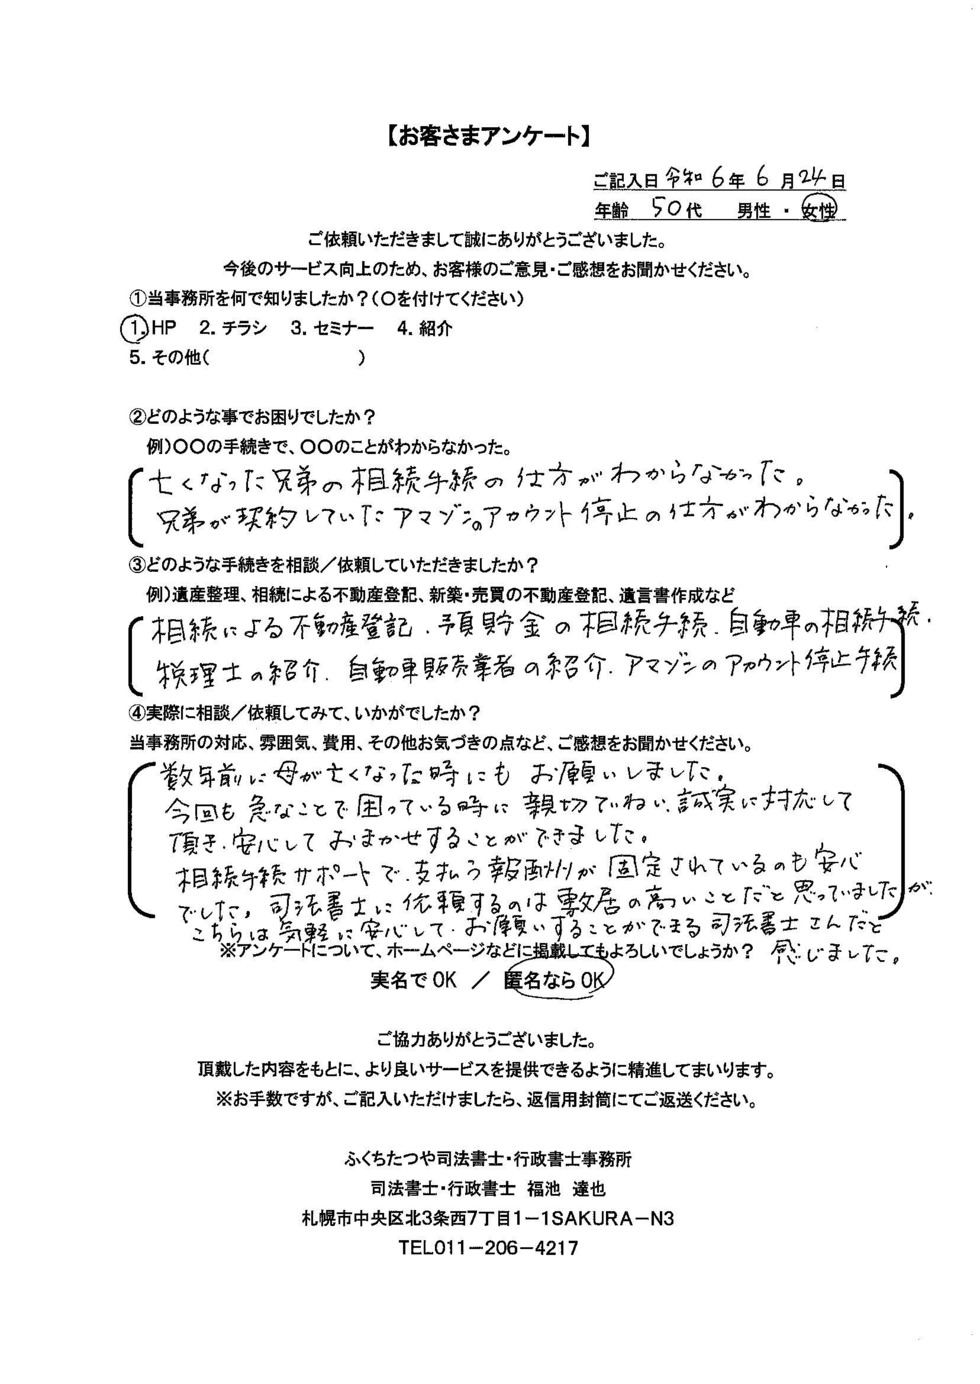 【お客さまアンケート】
ご記入日 令和6年6月24日
年齢 50代 男性・女性
ご依頼いただきまして誠にありがとうございました。
今後のサービス向上のため、お客様のご意見・ご感想をお聞かせください。
①当事務所を何で知りましたか？(○を付けてください)
1.HP 2.チラシ 3.セミナー 4.紹介
5.その他( )
②どのような事でお困りでしたか？
例)○○の手続きで、○○のことがわからなかった。
亡くなった兄弟の相続手続の仕方がわからなかった。
兄弟が契約していたアマゾンのアカウント停止の仕方がわからなかった。
③どのような手続きを相談／依頼していただきましたか？
例)遺産整理、相続による不動産登記、新築・売買の不動産登記、遺言書作成など
相続による不動産登記.預貯金の相続手続.自動車の相続手続.
税理士の紹介.自動車販売業者の紹介.アマゾンのアカウント停止手続
④実際に相談／依頼してみて、いかがでしたか？
当事務所の対応、雰囲気、費用、その他お気づきの点など、ご感想をお聞かせください。
数年前に母が亡くなった時にもお願いしました。
今回も急なことで困っている時に親切ていねい、誠実に対応して
頂き、安心しておまかせすることができました。
相続手続サポートで、支払う報酬が固定されているのも安心
でした。司法書士に依頼するのは敷居の高いことだと思っていましたが、
こちらは気軽に安心して、お願いすることができる司法書士さんだと
感じました。
※アンケートについて、ホームページなどに掲載してもよろしいでしょうか？
実名でOK ／ 匿名ならOK
ご協力ありがとうございました。
頂戴した内容をもとに、より良いサービスを提供できるように精進してまいります。
※お手数ですが、ご記入いただけましたら、返信用封筒にてご返送ください。
ふくちたつや司法書士・行政書士事務所
司法書士・行政書士 福池 達也
札幌市中央区北3条西7丁目1－1SAKURA－N3
TEL011－206－4217